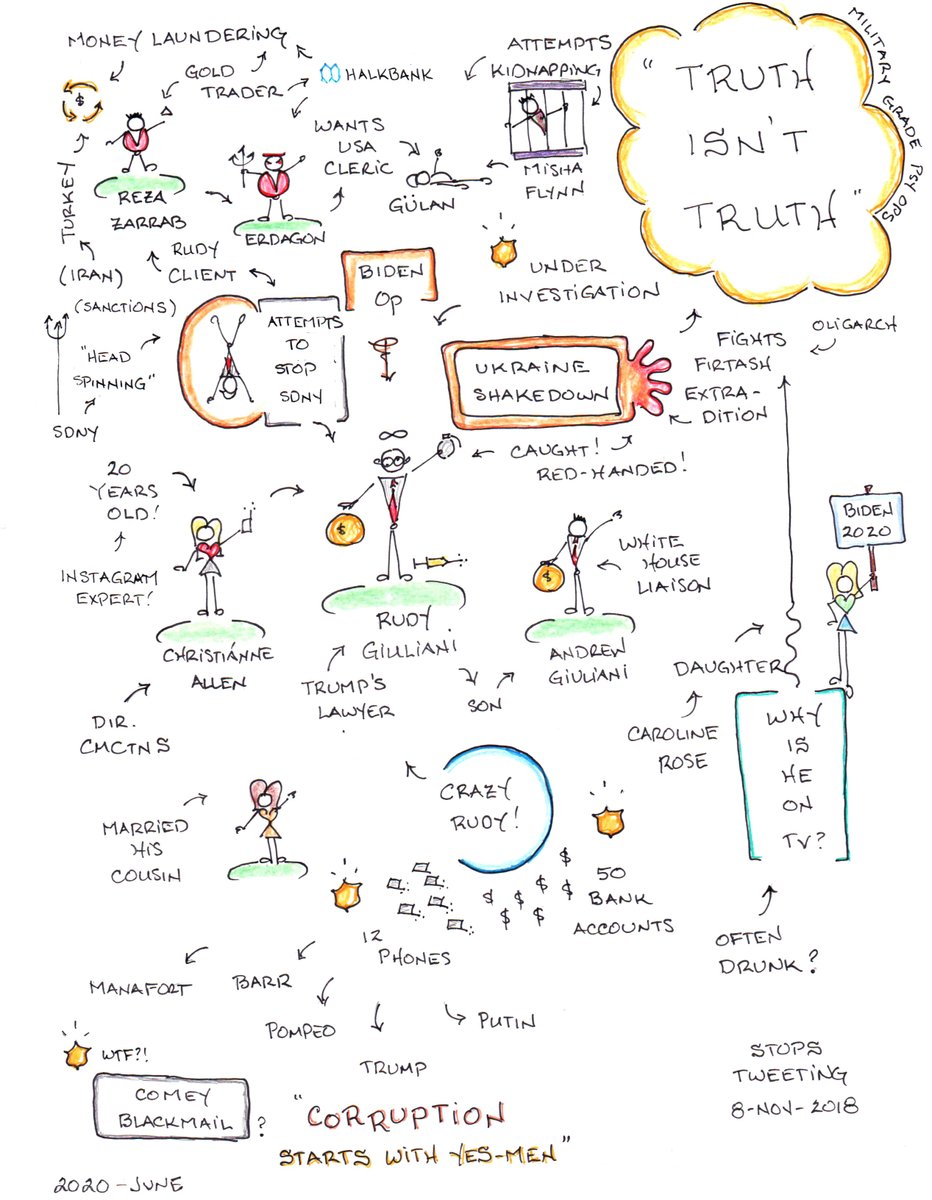 MONEY LAUNDERING
GOLD
TRADER
HALKBANK
ATTEMPTS
KIDNAPPING
MILITARY GRADE PSY OPS
"TRUTH
ISN'T
TRUTH"
$
TURKEY
REZA
ZARRAB
WANTS
USA
CLERIC
ERDAGON
GÜLAN
MISHA
FLYNN
(IRAN)
(SANCTIONS)
RUDY
CLIENT
BIDEN
OP
UNDER
INVESTIGATION
"HEAD
SPINNING"
SDNY
ATTEMPTS
TO
STOP
SDNY
UKRAINE
SHAKEDOWN
OLIGARCH
FIGHTS
FIRTASH
EXTRA-
DITION
CAUGHT!
RED-HANDED!
20
YEARS
OLD!
INSTAGRAM
EXPERT!
CHRISTIÁNNE
ALLEN
DIR.
CMCTNS
$
RUDY
GIULIANI
TRUMP'S
LAWYER
SON
$
WHITE
HOUSE
LIAISON
ANDREW
GIULIANI
BIDEN
2020
DAUGHTER
CAROLINE
ROSE
WHY
IS
HE
ON
TV?
OFTEN
DRUNK?
CRAZY
RUDY!
MARRIED
HIS
COUSIN
12
PHONES
$ $ $ $ $ $ $ $
50
BANK
ACCOUNTS
MANAFORT
BARR
POMPEO
TRUMP
PUTIN
WTF?!
COMEY
BLACKMAIL
?
"CORRUPTION
STARTS WITH YES-MEN"
STOPS
TWEETING
8-NOV-2018
2020-JUNE